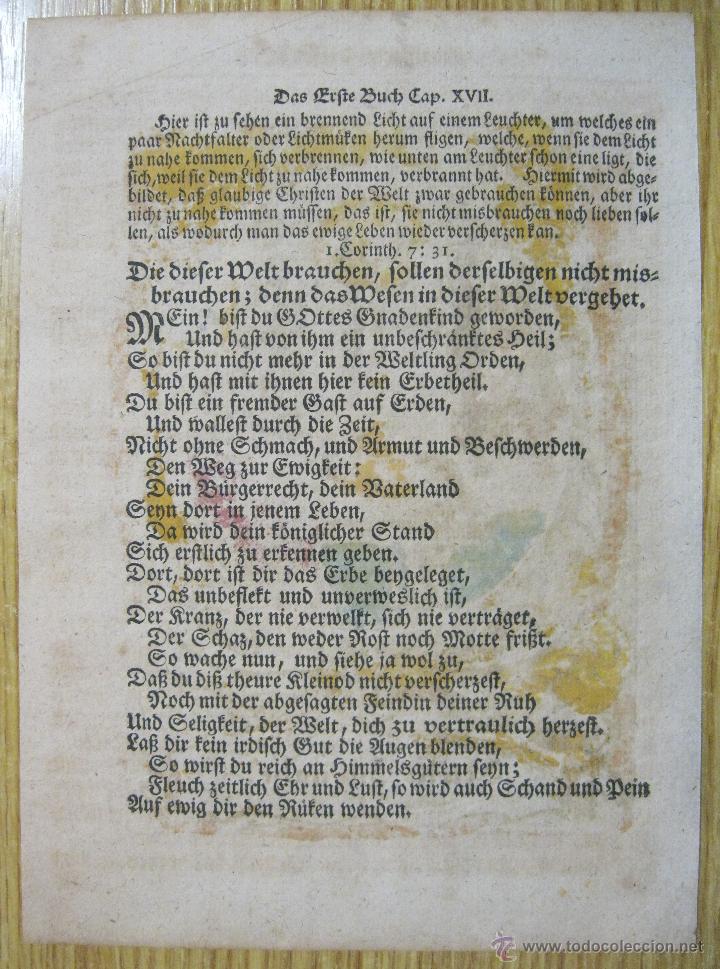 Das Erste Buch Cap. XVII.
Hier ist zu sehen ein brennend Licht auf einem Leuchter, um welches ein
paar Nachtfalter oder Lichtmüken herum fligen, welche, wenn sie dem Licht
zu nahe kommen, sich verbrennen, wie unten am Leuchter schon eine ligt, die
sich, weil sie dem Licht zu nahe kommen, verbrannt hat. Hiermit wird abge-
bildet, daß glaubige Christen der Welt zwar gebrauchen können, aber ihr
nicht zu nahe kommen müssen, das ist, sie nicht misbrauchen noch lieben sol-
len, als wodurch man das ewige Leben wieder verscherzen kan.
1. Corinth. 7: 31.
Die dieser Welt brauchen, sollen derselbigen nicht mis-
brauchen; denn das Wesen in dieser Welt vergehet.
MEin! bist du GOttes Gnadenkind geworden,
Und hast von ihm ein unbeschränktes Heil;
So bist du nicht mehr in der Weltling Orden,
Und hast mit ihnen hier kein Erbetheil.
Du bist ein fremder Gast auf Erden,
Und wallest durch die Zeit,
Nicht ohne Schmach, und Armut und Beschwerden,
Den Weg zur Ewigkeit:
Dein Bürgerrecht, dein Vaterland
Seyn dort in jenem Leben,
Da wird dein königlicher Stand
Sich erstlich zu erkennen geben.
Dort, dort ist dir das Erbe beygeleget,
Das unbeflekt und unverweslich ist,
Der Kranz, der nie verwelkt, sich nie verträget,
Der Schaz, den weder Rost noch Motte frißt.
So wache nun, und siehe ja wol zu,
Daß du diß theure Kleinod nicht verscherzest,
Noch mit der abgesagten Feindin deiner Ruh
Und Seligkeit, der Welt, dich zu vertraulich herzest.
Laß dir kein irdisch Gut die Augen blenden,
So wirst du reich an Himmelsgütern seyn;
Fleuch zeitlich Ehr und Lust, so wird auch Schand und Pein
Auf ewig dir den Rüken wenden.
© www.todocoleccion.net